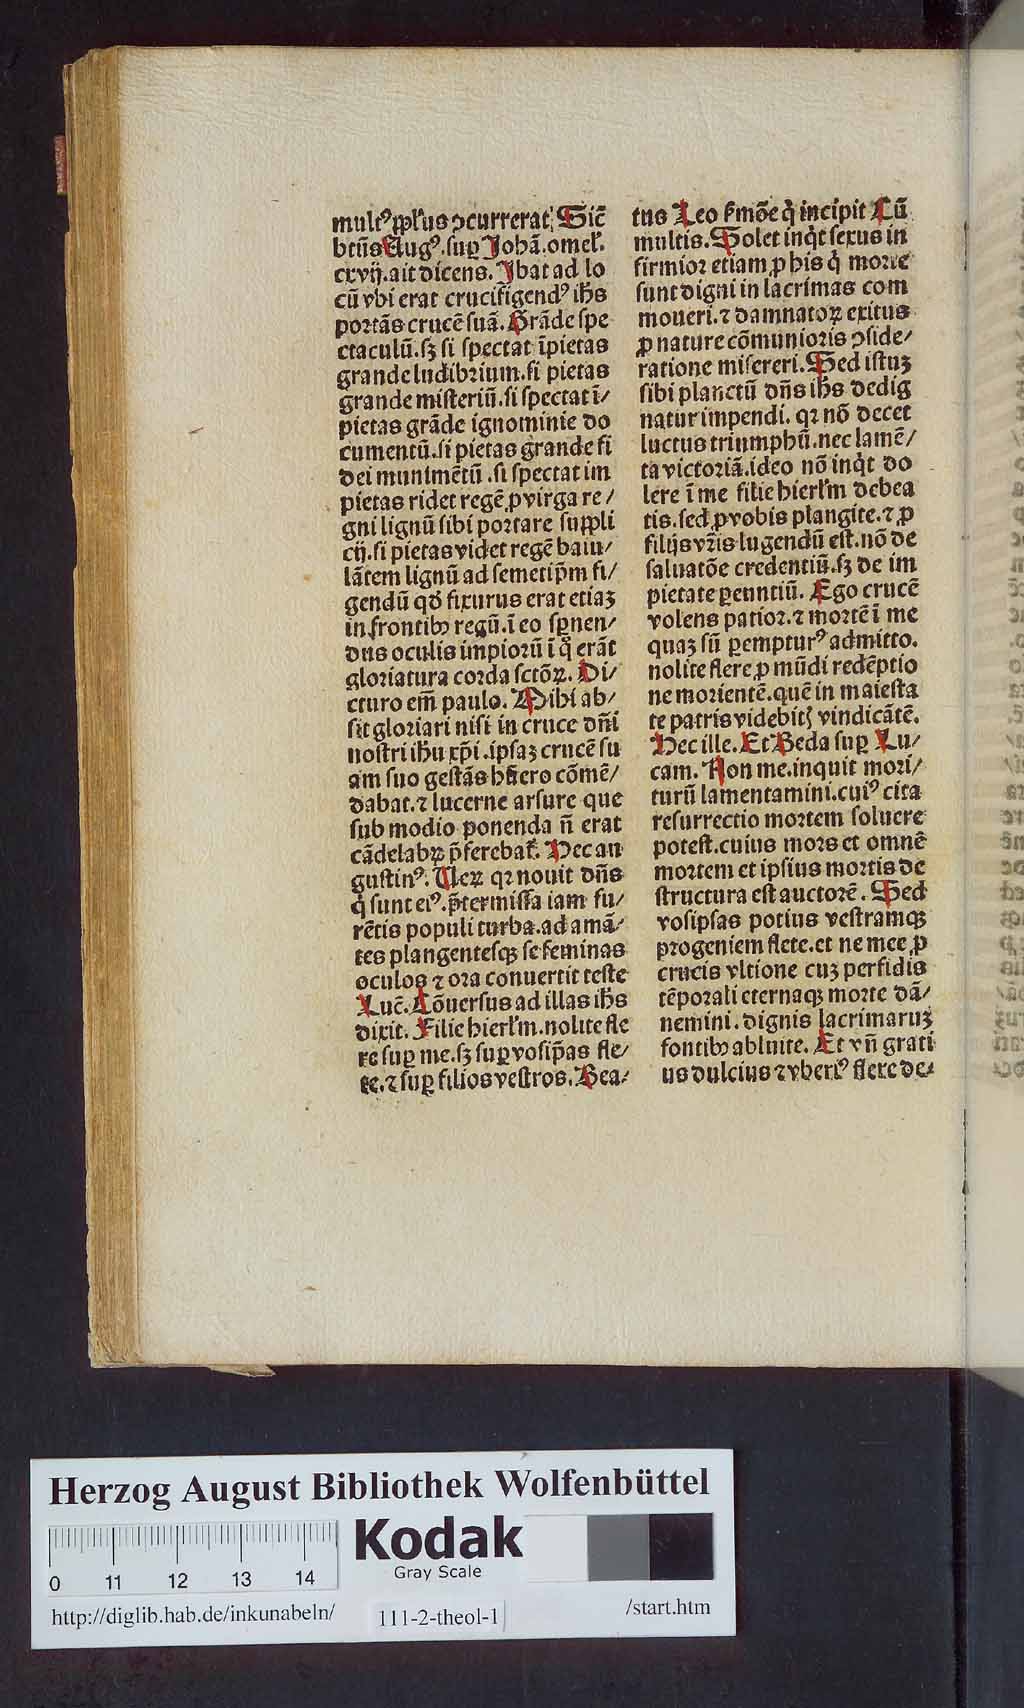 multꝰ pplꝰus ↄcurrerat. Sic̄
btūs Augꝰ. suꝑ Johā. omel̓.
cxvij. ait dicens. Ibat ad lo
cū vbi erat crucifigendꝰ ih̄s
portās crucē suā. Grāde spe
ctaculū. sꝫ si spectat īpietas
grande ludibrium. si pietas
grande misteriū. si spectat ī/
pietas grāde ignominie do
cumentū. si pietas grande fi
dei munimētū. si spectat im
pietas ridet regē ꝓ virga re/
gni lignū sibi portare suppli
cij. si pietas videt regē baiu/
lātem lignū ad semetip̄m fi/
gendū qđ fixurus erat etiaꝫ
in frontibꝰ regū. ī eo sꝑnen/
dus oculis impiorū ī q̄ erāt
gloriatura corda sctōꝝ. Di/
cturo em̄ paulo. Mihi ab/
sit gloriari nisi in cruce dn̄i
nostri ihū xp̄i. ipsaꝫ crucē su
am suo gestās hūero cōmē/
dabat. ⁊ lucerne arsure que
sub modio ponenda n̄ erat
cādelabꝝ p̄ferebat̓. Hec au
gustinꝰ. Veꝝ qꝛ nouit dn̄s
q̄ sunt eiꝰ. p̄termissa iam fu/
rētis populi turba. ad amā/
tes plangentesqꝫ se feminas
oculos ⁊ ora conuertit teste
Luc̄. Cōuersus ad illas ih̄s
dixit. Filie hierl̓m. nolite fle
re suꝑ me. sꝫ suꝑ vosip̄as fle/
te. ⁊ suꝑ filios vestros. Bea/
tus Leo s̓mōe q̄ incipit Cū
multis. Solet inq̇t sexus in
firmior etiam ꝓ his q̇ morte
sunt digni in lacrimas com
moueri. ⁊ damnatoꝝ exitus
ꝓ nature cōmunioris ↄside/
ratione misereri. Sed istuꝫ
sibi planctū dn̄s ih̄s dedig
natur impendi. qꝛ nō decet
luctus triumphū. nec lamē/
ta victoriā. ideo nō inq̇t do
lere ī me filie hierl̓m debea
tis. sed ꝓ vobis plangite. ⁊ ꝓ
filijs vr̄is lugendū est. nō de
saluatōe credentiū. sꝫ de im
pietate ꝑeuntiū. Ego crucē
volens patior. ⁊ mortē ī me
quaꝫ sū ꝑempturꝰ admitto.
nolite flere ꝓ mūdi redēptio
ne morientē. quē in maiesta
te patris videbitꝭ vindicātē.
Hec ille. Et Beda suꝑ Lu/
cam. Non me. inquit mori/
turū lamentamini. cuiꝰ cita
resurrectio mortem soluere
potest. cuius mors et omnē
mortem et ipsius mortis de
structura est auctorē. Sed
vosipsas potius vestramqꝫ
progeniem flete. et ne mee ꝓ
crucis vltione cuꝫ perfidis
tēporali eternaqꝫ morte dā/
nemini. dignis lacrimaruꝫ
fontibꝰ abluite. Et vn̄ grati
us dulcius ⁊ vberiꝰ flere de/
Herzog August Bibliothek Wolfenbüttel
0 11 12 13 14
Kodak
Gray Scale
http://diglib.hab.de/inkunabeln/ 111-2-theol-1 /start.htm